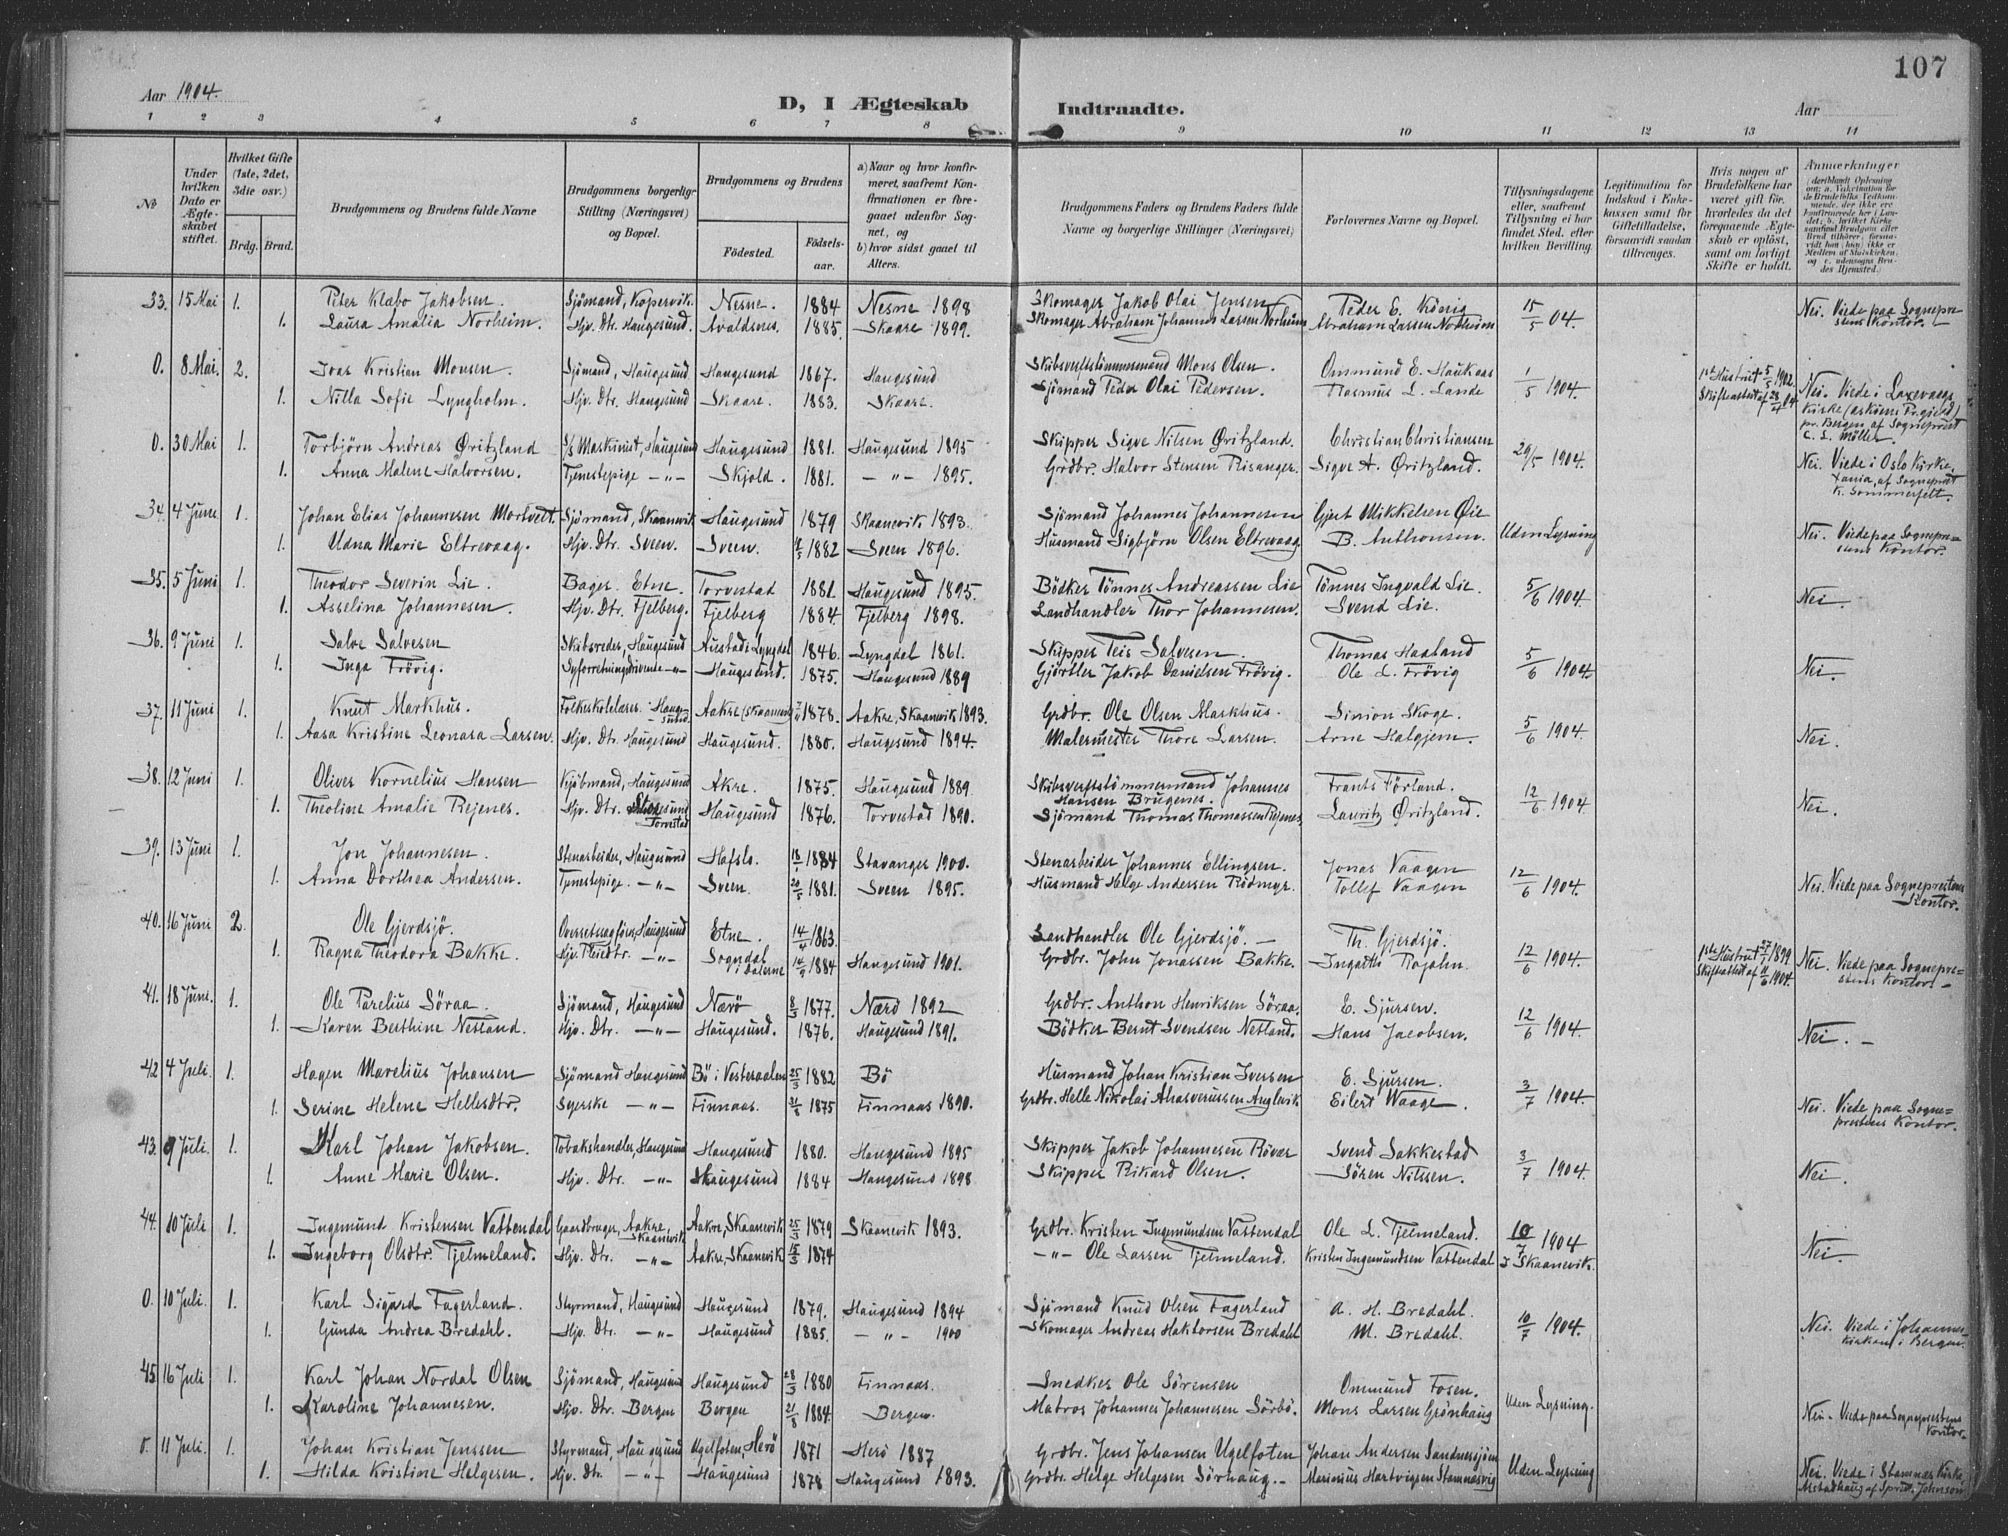 107
Aar 1904.
D, I Ægteskab Indtraadte.
Aar
1 2 3 4 5 6 7 8 9 10 11 12 13 14
No
Under hvilken Dato er Ægteskabet stiftet.
Hvilket Gifte (1ste, 2det, 3die osv.)
Brdg. Brud.
Brudgommens og Brudens fulde Navne
Brudgommens borgerlige Stilling (Næringsvei) og Bopæl.
Brudgommens og Brudens
Födested. Födselsaar.
a) Naar og hvor konfirmeret, saafremt Konfirmationen er foregaaet udenfor Sognet, og
b) hvor sidst gaaet til Alters.
Brudgommens Faders og Brudens Faders fulde Navne og borgerlige Stillinger (Næringsvei)
Forlovernes Navne og Bopæl.
Tillysningsdagene eller, saafremt Tillysning ei har fundet Sted, efter hvilken Bevilling.
Legitimation for Indskud i Enkekassen samt for Giftetilladelse, forsaavidt saadan tiltrænges.
Hvis nogen af Brudefolkene har været gift för, hvorledes da det foregaaende Ægteskab er oplöst, samt om lovligt Skifte er holdt.
Anmærkninger
33. 15 Mai 1. Peter Klabo Jakobsen. Sjömand, Kopervik. Nesne. 1884 Nesne 1898 Skomager Jakob Olai Jensen Peder E. König 15/5 04. Nei. Viede paa Sogneprestens Kontor.
1. Laura Amalia Norheim. Hjv. Dtr. Haugesund. Avaldsnes. 1885. Skaare 1899. Skomager Abraham Johannes Larsen Norheim Abraham Larsen Norheim
0. 8 Mai. 2. Joas Kristian Monsen. Sjömand, Haugesund Haugesund 1867. Haugesund Skibsverftstömmermand Mons Olsen. Ommund E. Haukaas 1/5 1904. 1ste Hustru † 5/5 1902. Skifteattest af 23/4 04 Nei. Viede i Laxevaags Kirke (Askøens Prgjeld) pr. Bergen af Sogneprest C. S. Möller.
1. Nilla Sofie Lyngholm. Hjv. Dtr. Haugesund Skaare. 1883. Skaare. Sjömand Peder Olai Pedersen. Rasmus L. Lande
0. 30 Mai 1. Torbjörn Andreas Øritzland S/s Maskinist, Haugesund Haugesund 1881. Haugesund 1895 Skipper Sigve Nilsen Øritzland. Christian Christiansen 29/5 1904.
1. Anna Malene Halvorsen. Tjenestepige -"- Skjold. 1881. -"- 1895. Grdbr. Halvor Stensen Risanger. Sigve A. Øritzland. Nei. Viede i Oslo Kirke, Xania, af Sogneprest K. Sommerfelt.
34. 4 Juni 1. Johan Elias Johannesen Mortvedt. Sjömand, Skaanevik Haugesund 1879 Skaanevik 1893. Sjömand Johannes Johannesen Gjert Mikkelsen Øie Uden Lysning Nei. Viede paa Sogneprestens Kontor.
1. Udna Marie Eltrevaag. Hjv. Dtr. Sveen. Sveen. 1882 Sveen 1896. Husmand Sigbjörn Olsen Eltrevaag B. Anthonsen.
35. 5 Juni 1. Theodor Severin Lie. Bager. Etne. Torvestad 1881. Haugesund 1895. Bödker Tönnes Andreassen Lie Tönnes Ingvald Lie. 5/6 1904. Nei.
1. Asselina Johannesen. Hjv. Dtr. Fjelberg. Fjelberg 1884. Fjelberg 1898. Landhandler Thor Johannesen. Svend Lie.
36. 9 Juni 1. Salve Salvesen Skibsreder, Haugesund Austad i Lyngdal 1846. Lyngdal 1861. Skipper Teis Salvesen. Thomas Haaland 5/6 1904. Nei.
1. Inga Frövig. Syforretningsdrivende -"- Haugesund. 1875. Haugesund 1889 Gjörtler Jakob Danielsen Frövig. Ole L. Frövig
37. 11 Juni 1. Knut Markhus. Folkeskolelærer. Haugesund Aakre (Skaanevik) 1878. Aakre, Skaanevik 1893. Grdbr. Ole Olsen Markhus. Simion Skoge. 5/6 1904. Nei.
1. Aasa Kristine Leonara Larsen. Hjv. Dtr. Haugesund Haugesund. 1880. Haugesund 1894. Malermester Thore Larsen. Arne Halgjem.
38. 12 Juni 1. Oliver Kornelius Hansen Kjöbmand, Haugesund Akre. 1875. Haugesund 1889. Skibsverftstömmermand Johannes Hansen Brugenes. Frants Förland. 12/6 1904. Nei.
1. Theoline Amalie Rejenes. Hjv. Dtr. Torvestad Haugesund 1876. Torvestad 1890. Sjömand Thomas Thomassen Rejenes. Lauritz Øritzland.
39. 13 Juni 1. Jon Johannesen. Stenarbeider, Haugesund Hafslo. 18/1 1884 Stavanger 1900. Stenarbeider Johannes Ellingsen. Jonas Vaagen 12/6 1904.
1. Anna Dorthea Andersen. Tjenestepige. -"- Sveen. 20/5 1881. Sveen 1895. Husmand Helge Andersen Rödmyr. Tollef Vaagen Nei. Viede paa Sogneprestens Kontor.
40. 16 Juni 2. Ole Gjerdsjö. Overretssagförer, Haugesund Etne. 14/4 1863. Landhandler Ole Gjerdsjö. Th. Gjerdsjö. 12/6 1904. 1ste Hustru † 1899. Skifteattest af 1904. Nei. Viede paa Sogneprestens Kontor.
1. Ragna Theodora Bakke. Hjv. Pleiedtr. -"- Sogndal i Dalerne 14/9 1884 Haugesund 1901. Grdbr. John Jonassen Bakke. Ingarth Rojahn.
41. 18 Juni. 1. Ole Parelius Söraa. Sjömand, Haugesund Nærö 8/3 1877. Nærö 1892 Grdbr. Anthon Henriksen Söraa. E. Sjursen. 12/6 1904. Nei.
1. Karen Berthine Netland. Hjv. Dtr. -"- Haugesund. 1876. Haugesund 1891. Bödker Bernt Svendsen Netland. Hans Jacobsen.
42. 4 Juli. 1. Hagen Marelius Johansen Sjömand Haugesund Bö i Vesteraalen 25/3 1882 Bö Husmand Johan Kristian Iversen E. Sjursen. 3/7 1904.
1. Serine Helene Hellesdtr. Syerske -"- Finnaas. 21/8 1875 Finnaas 1890. Grdbr. Helle Nikolai Ahasverussen Anglevik Eilert Waage. Nei. Viede paa Sogneprestens Kontor.
43. 9 Juli. 1. Karl Johan Jakobsen. Tobakshandler, Haugesund Haugesund 1880. Haugesund 1895 Skipper Jakob Johannesen Rövær Svend Sakkestad 3/7 1904. Nei.
1. Anne Marie Olsen. Hjv. Dtr. -"- Haugesund 1884 Haugesund 1898 Skipper Rikard Olsen. Sören Nilssen.
44. 10 Juli 1. Ingemund Kristensen Vattendal Gaardbruger, Aakre, Skaanevik Aakre, Skaanevik 25/3 1879 Skaanevik 1893. Grdbr. Kristen Ingemundsen Vattendal Ole L. Tjelmeland. 10/7 1904 I Skaanevik. Nei.
1. Ingeborg Olsdtr. Tjelmeland. Hjv. Dtr. -"- Aakre, Skaanevik 15/3 1874 -"- Ole Larsen Tjelmeland. Kristen Ingemundsen Vattendal
0. 10 Juli. 1. Karl Sigard Fagerland. Styrmand, Haugesund Haugesund 1879. Haugesund 1894 Sjömand Knud Olsen Fagerland A. H. Bredahl. 10/7 1904.
1. Gunda Andrea Bredahl. Hjv. Dtr. -"- Haugesund 1885. -"- 1900 Skomager Andreas Haktorsen Bredahl M. Bredahl. Nei. Viede i Johanneskirken i Bergen.
45. 16 Juli 1. Karl Johan Nordal Olsen Sjömand, Haugesund Haugesund 28/3 1880 Finnaas. Snedker Ole Sörensen Ommund Fosen. Uden Lysning.
1. Karoline Johannesen. Hjv. Dtr. Bergen Bergen 21/8 1884. Bergen. Matros Johannes Johannesen Sörbö. Mons Larsen Grönhaug Nei. Viede paa Sogneprestens Kontor.
0. 11 Juli. 1. Johan Kristian Jenssen Styrmand, Haugesund Ugelfoten, Herö 1871 Herö 1887 Grdbr. Jens Johansen Ugelfoten Johan Andersen Sandnessjöen Uden Lysning
1. Hilda Kristine Helgesen. Hjv. Dtr. -"- Haugesund 1878 Haugesund 1893. Grdbr. Helge Helgesen Sörhaug. Marinius Hartvigsen Stamnesvig Nei. Viede i Stamnes Kirke, Alstadhaug af Sprst. Johnson